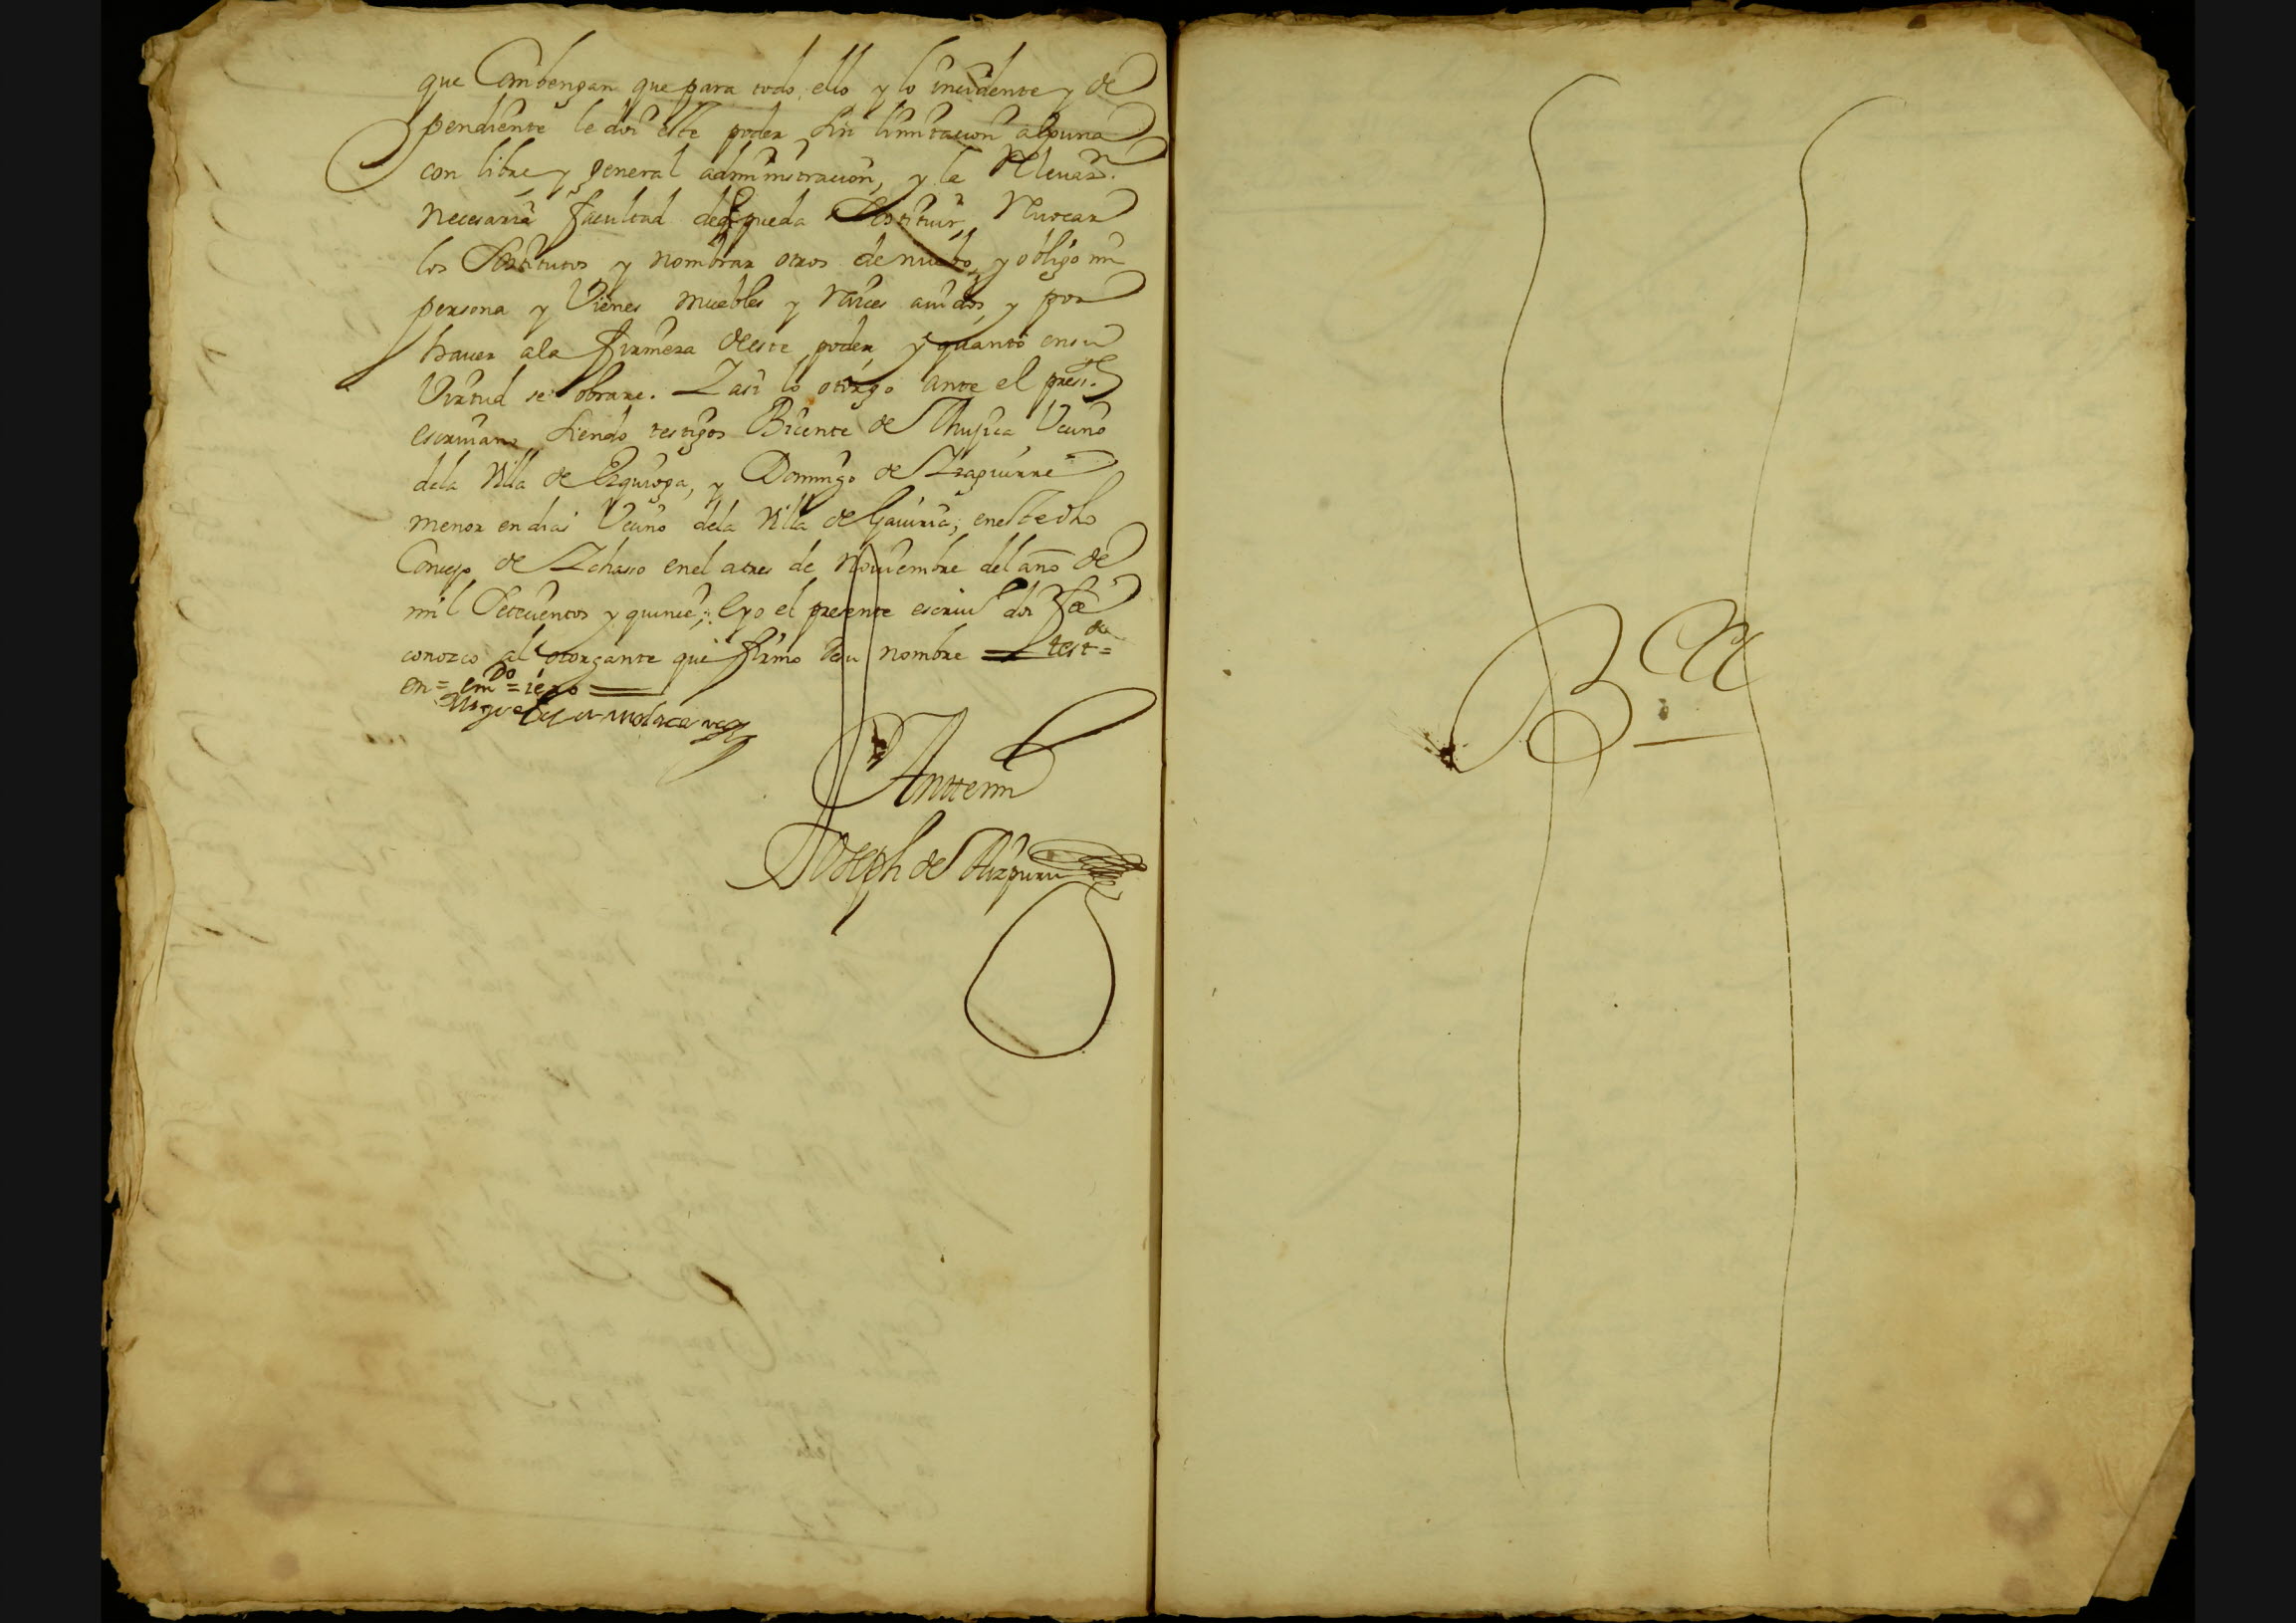 que Combengan que para todo ello y lo incidente y de
pendiente le doi este poder sin limitacion alguna
con libre y general administracion, y la Relevaz.on
necesaria facultad de q pueda Sostituir, Revocar
los Sostitutos y nombrar otros de nuebo, y obligo mi
persona y Vienes muebles y raices auidos, y por
hauer ala firmeza deeste poder, y quanto en su
Virtud se obrare. Y asi lo otorgo ante el press.te
escriuano, siendo testigos Bicente de Mujica Vecino
dela Villa de Ezquioga, y Domingo de Yzaguirre
menor en dias Vecino dela Villa de Gauiria, en este dho
Concejo de Ychasso en el a tres de Nouiembre del año de
mil Setecientos y quince; E yo el presente escriu.o doi fee
conozco al otorgante que firmo de su nombre = test.do =
en = em.do = iezo =
Miguel
Anttemi
Joseph de Aizpuru
B.ca